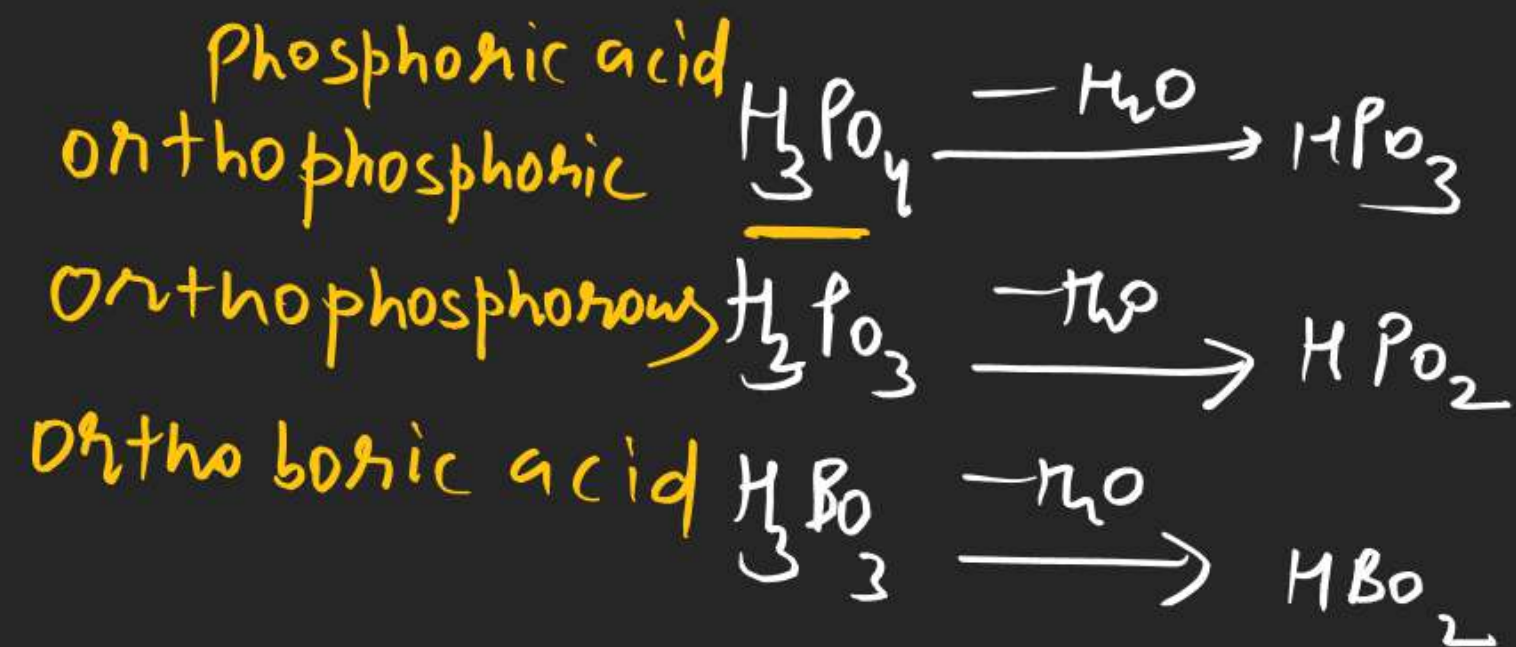 Phosphoric acid
orthophosphoric H₃PO₄ —H₂O→ HPO₃
Orthophosphorous H₃PO₃ —H₂O→ HPO₂
Ortho boric acid H₃BO₃ —H₂O→ HBO₂